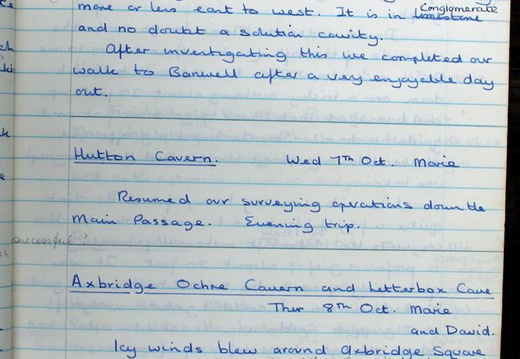 more or less east to west. It is in limestone Conglomerate
and no doubt a solution cavity.
After investigating this we completed our
walk to Banwell after a very enjoyable day
out.
Hutton Cavern. Wed 7th Oct. Marie
Resumed our surveying operations down the
Main Passage. Evening trip.
successful?
Axbridge Ochre Cavern and Letterbox Cave
Thur 8th Oct. Marie
and David.
Icy winds blew around Axbridge Square